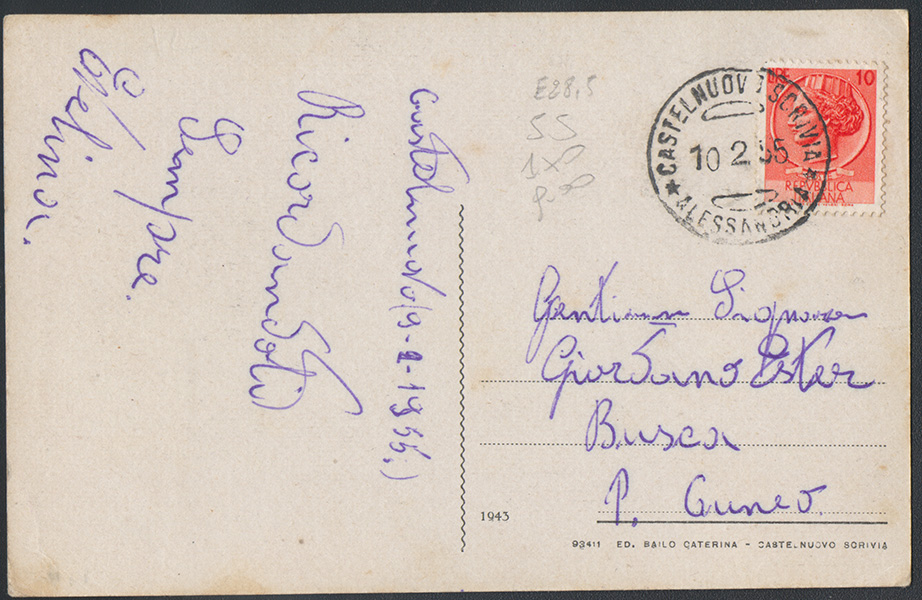 Castelnuovo (9-2-1955.)
Ricordandoti
Sempre.
Evelina.
E28,5
55
CASTELNUOVO SCRIVIA
10.2.55
ALESSANDRIA
LIRE 10
REPVBBLICA
ITALIANA
Genti Signora
Giordano Ester
Busca
P. Cuneo.
1943
93411 ED. BAILO CATERINA - CASTELNUOVO SCRIVIA